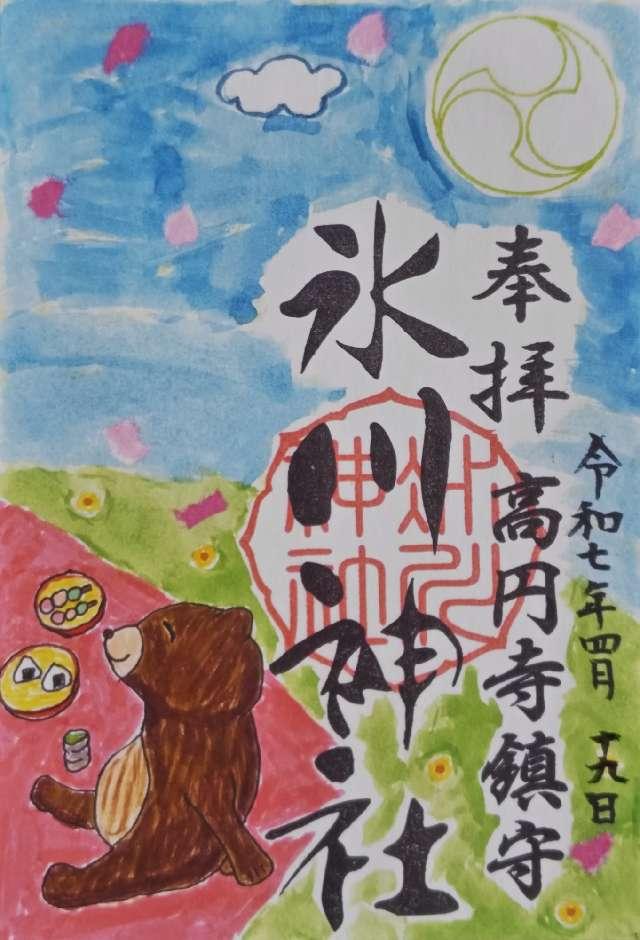 奉拝 高円寺鎮守
令和七年四月 十九日
氷川神社
氷川神社